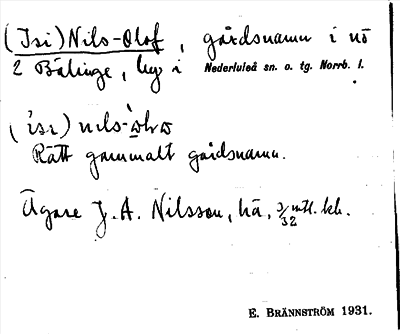 (Isi) Nils-Olof, gårdsnamn i nö
2 Bälinge, by i Nederluleå sn. o. tg. Norrb. l.
Rätt gammalt gårdsnamn.
Ägare J. A. Nilsson, hä, 3/32 mtl. kh.
E. BRÄNNSTRÖM 1931.